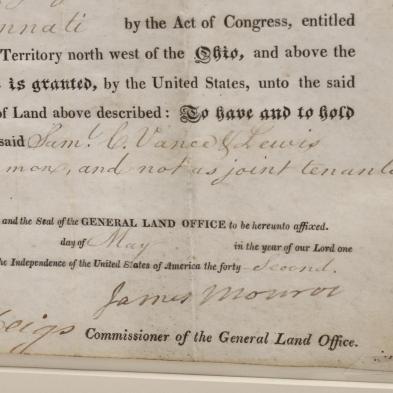 nnati by the Act of Congress, entitled
Territory north west of the Ohio, and above the
is granted, by the United States, unto the said
of Land above described: To have and to hold
said Saml. C. Vance & Lewis
mon, and not as joint tenants
and the Seal of the GENERAL LAND OFFICE to be hereunto affixed.
day of May in the year of our Lord one
the Independence of the United States of America the forty-Second.
James Monroe
eigs Commissioner of the General Land Office.